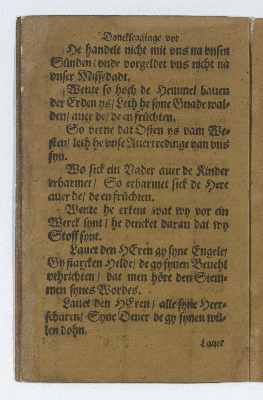 Danckseginge vor
He handelt nicht mit vns na vnsen
Sünden/ vnde vorgeldet vns nicht na
vnser Missedadt.
Wente so hoch de Hemmel bauen
der Erden ys/ Leth he syne Gnade wal-
den/ auer de/ de en früchten.
So verne dat Osten ys vam We-
sten/ leth he vnse Auertredinge van vns
syn.
Wo sick ein Vader auer de Kinder
erbarmet/ So erbarmet sick de Here
auer de/ de en früchten.
Wente he erkent wat wy vor ein
Werck synt/ he dencket daran dat wy
Stoff synt.
Lauet den HEren gy syne Engele/
Gy starcken Helde/ de gy synen Beuehl
vthrichten/ dat men höre den Stem-
men synes Wordes.
Lauet den HEren/ alle syne Heer-
scharen/ Syne Dener de gy synen wil-
len dohn.
Lauet